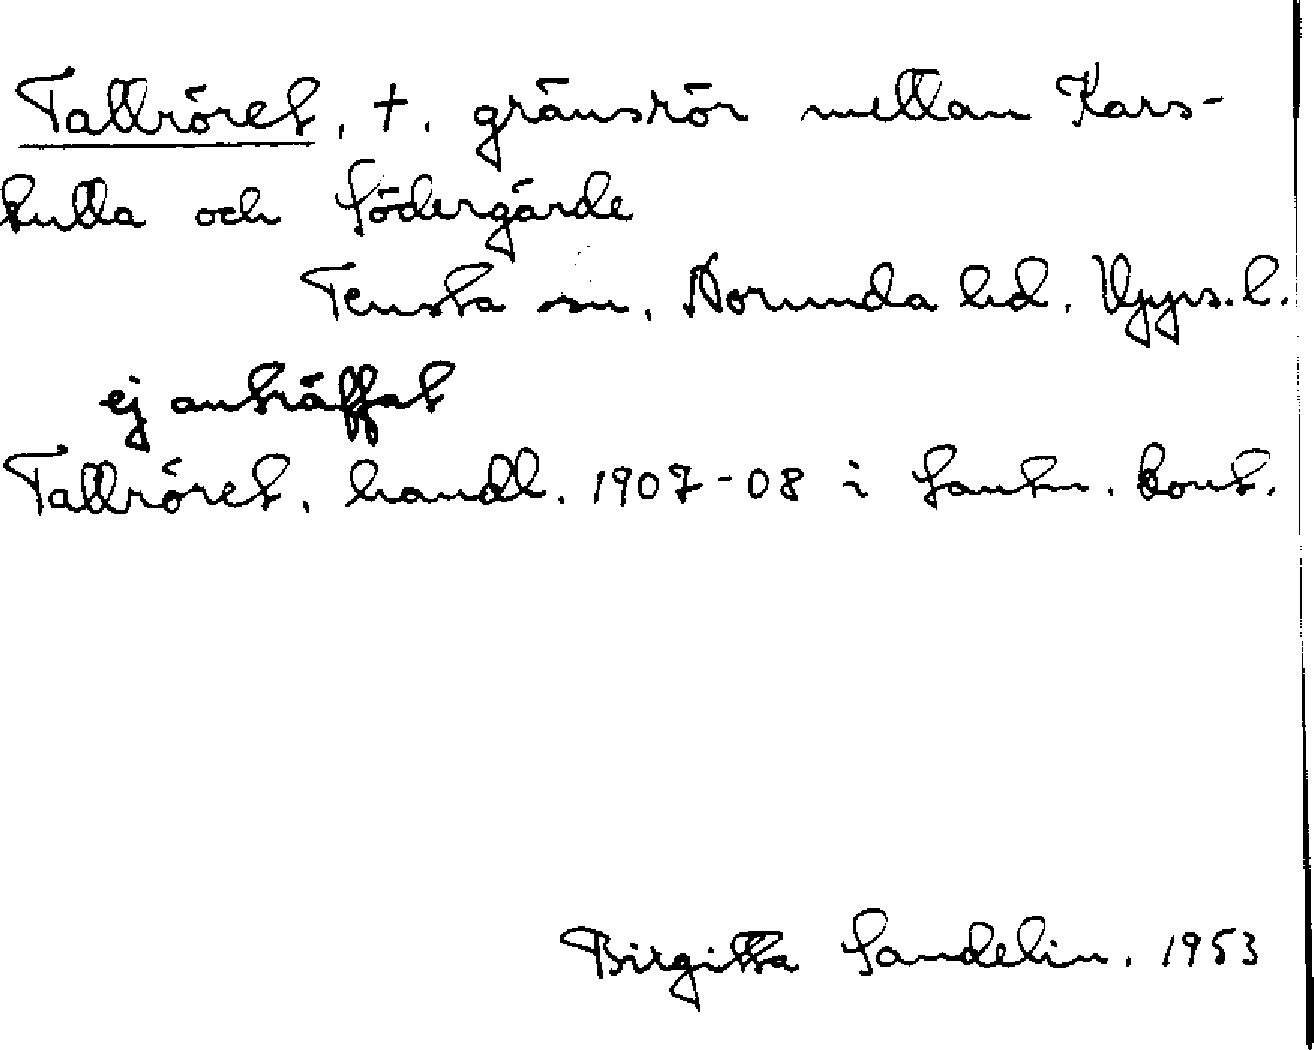 Tallröret, †, gränsrör mellan Kars-
kulla och Södergärde
Tensta sn, Norunda hd. Upps.l.
ej anträffat
Tallröret, handl. 1907-08 i Lantm. kont.
Birgitta Sandelin, 1953